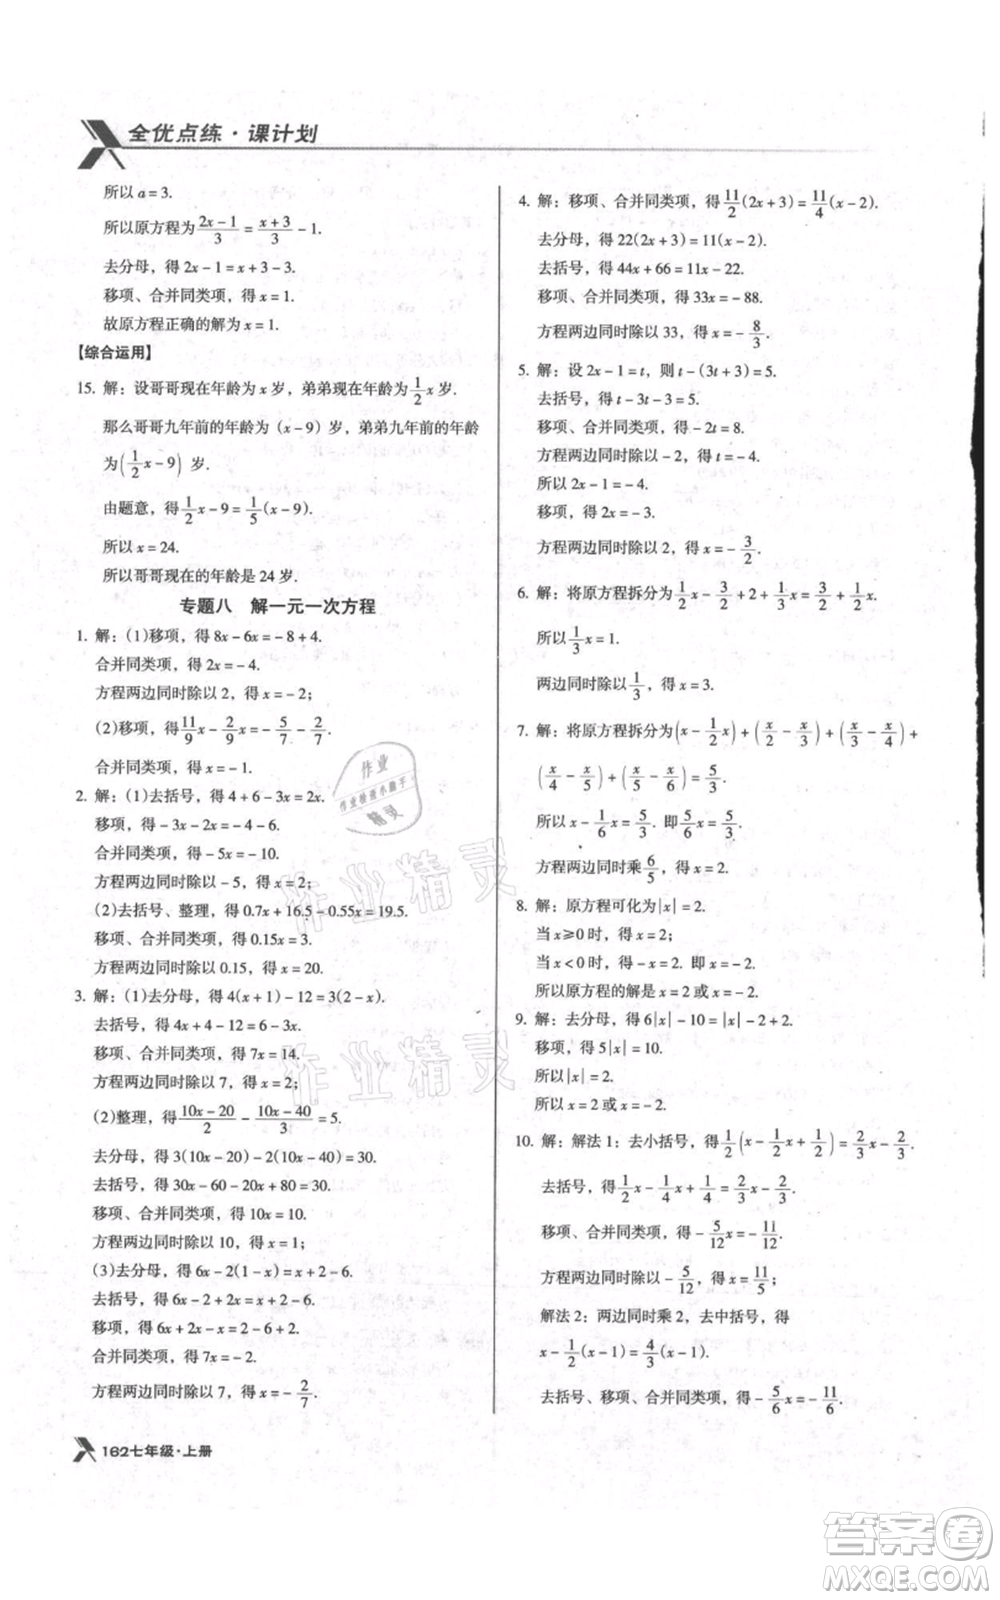 全优点练·课计划
所以 a=3.
所以原方程为(2x-1)/3=(x+3)/3-1.
去分母，得 2x-1=x+3-3.
移项、合并同类项，得 x=1.
故原方程正确的解为 x=1.
【综合运用】
15. 解：设哥哥现在年龄为 x 岁，弟弟现在年龄为 1/2 x 岁.
那么哥哥九年前的年龄为(x-9)岁，弟弟九年前的年龄
为(1/2 x-9)岁.
由题意，得 1/2 x-9=1/5(x-9).
所以 x=24.
所以哥哥现在的年龄是 24 岁.
专题八 解一元一次方程
1. 解：(1)移项，得 8x-6x=-8+4.
合并同类项，得 2x=-4.
方程两边同时除以 2，得 x=-2；
(2)移项，得 11/9 x-2/9 x=-5/7-2/7.
合并同类项，得 x=-1.
2. 解：(1)去括号，得 4+6-3x=2x.
移项，得 -3x-2x=-4-6.
合并同类项，得 -5x=-10.
方程两边同时除以 -5，得 x=2；
(2)去括号、整理，得 0.7x+16.5-0.55x=19.5.
移项、合并同类项，得 0.15x=3.
方程两边同时除以 0.15，得 x=20.
3. 解：(1)去分母，得 4(x+1)-12=3(2-x).
去括号，得 4x+4-12=6-3x.
移项、合并同类项，得 7x=14.
方程两边同时除以 7，得 x=2；
(2)整理，得(10x-20)/2-(10x-40)/3=5.
去分母，得 3(10x-20)-2(10x-40)=30.
去括号，得 30x-60-20x+80=30.
移项、合并同类项，得 10x=10.
方程两边同时除以 10，得 x=1；
(3)去分母，得 6x-2(1-x)=x-6.
去括号，得 6x-2+2x=x-6.
移项，得 6x+2x-x=-6+2.
合并同类项，得 7x=-4.
方程两边同时除以 7，得 x=-4/7.
4. 解：移项、合并同类项，得 11/2(2x+3)=11/4(x-2).
去分母，得 22(2x+3)=11(x-2).
去括号，得 44x+66=11x-22.
移项、合并同类项，得 33x=-88.
方程两边同时除以 33，得 x=-8/3.
5. 解：设 2x-1=t，则 t-(3t+3)=5.
去括号，得 t-3t-3=5.
移项、合并同类项，得 -2t=8.
方程两边同时除以 -2，得 t=-4.
所以 2x-1=-4.
移项，得 2x=-3.
方程两边同时除以 2，得 x=-3/2.
6. 解：将原方程拆分为 1/2 x-3/2+2+1/2=1/6 x.
所以 1/3 x=1.
两边同时除以 1/3，得 x=3.
7. 解：将原方程拆分为(x-1/2 x)+(x/2-x/3)+(x/3-x/4)+
(x/4-x/5)+(x/5-x/6)=5/3.
所以 x-1/6 x=5/3. 即 5/6 x=5/3.
方程两边同时乘 6/5，得 x=2.
8. 解：原方程可化为|x|=2.
当 x≥0 时，得 x=2；
当 x<0 时，得 -x=2. 即 x=-2.
所以原方程的解是 x=2 或 x=-2.
9. 解：去分母，得 6|x|-10=|x|-2+2.
移项，得 5|x|=10.
所以|x|=2.
所以 x=2 或 x=-2.
10. 解：解法 1：去小括号，得 1/2(x-1/2 x+1/2)=2/3 x-2/3.
去括号，得 1/2 x-1/4 x+1/4=2/3 x-2/3.
移项、合并同类项，得 -5/12 x=-11/12.
方程两边同时除以 -5/12，得 x=11/5；
解法 2：两边同时乘 2，去中括号，得
x-1/2(x-1)=4/3(x-1).
去括号、移项、合并同类项，得 -5/6 x=-11/6.
162七年级·上册
作业
作业检查小助手
精灵
作业精灵
作业精灵
答案卷
MXQE.COM